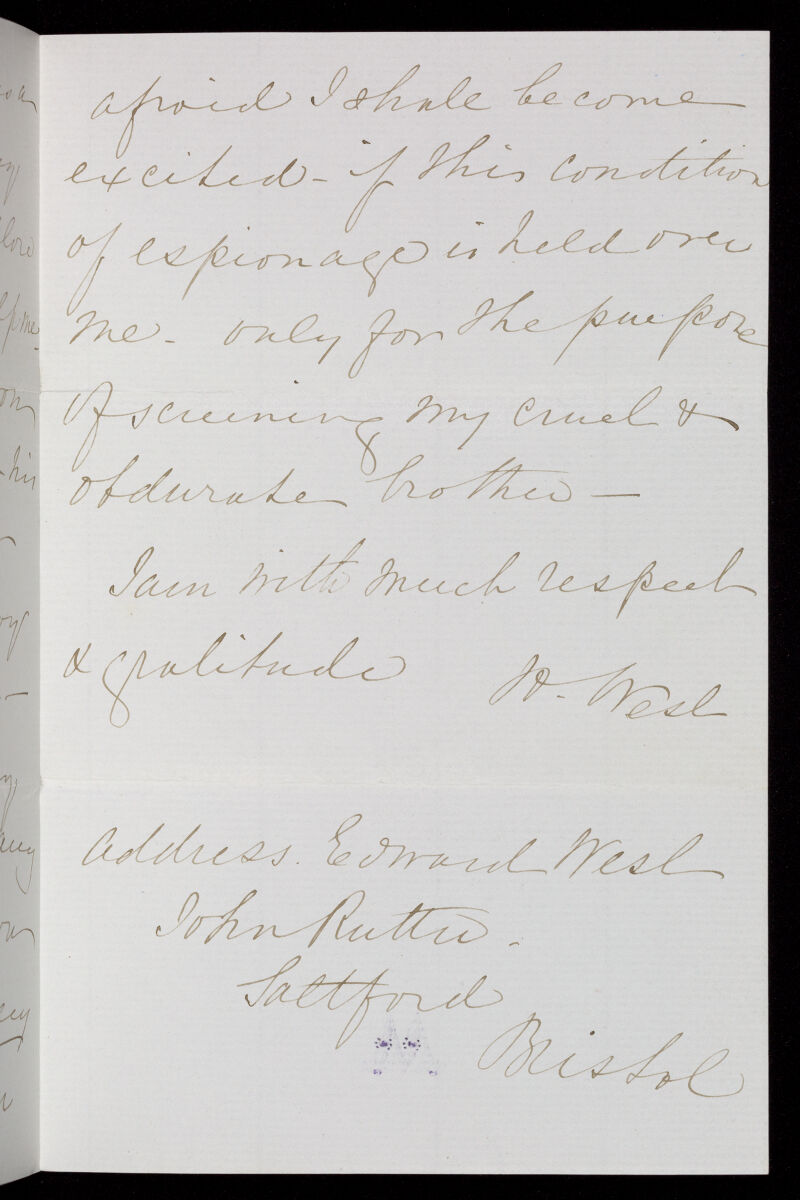 afraid I shall become
excited - if this condition
of espionage is held over
me - only for the purpose
of screening my cruel &
obdurate brother —
I am with much respect
& gratitude H. West
Address. Edward West
John Rutter.
Saltford
Bristol